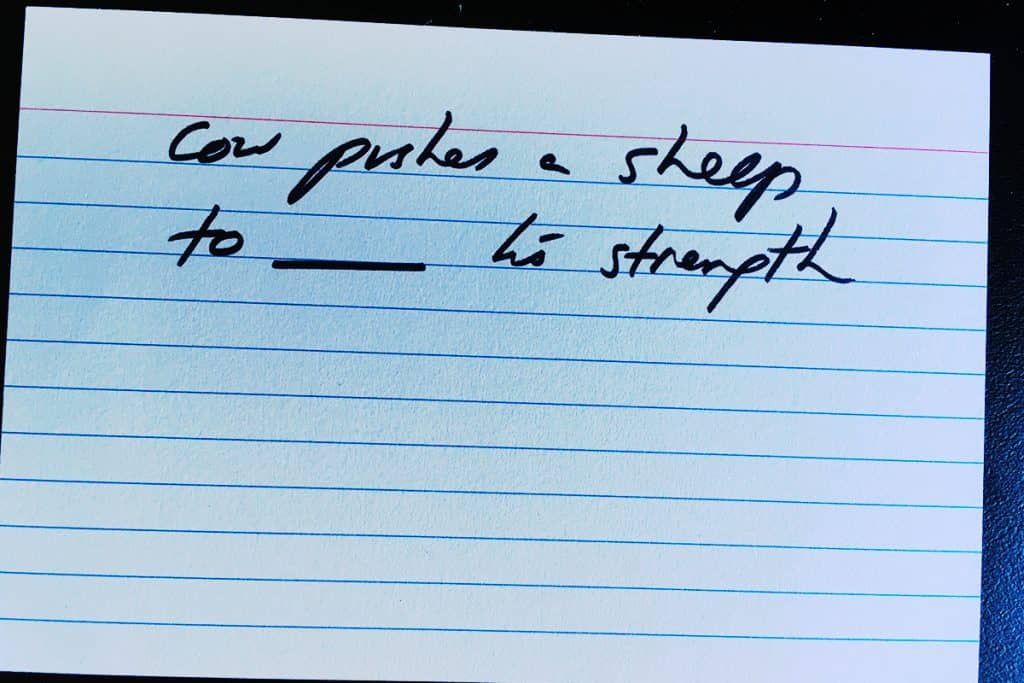 Cow pushes a sheep
to _____ his strength